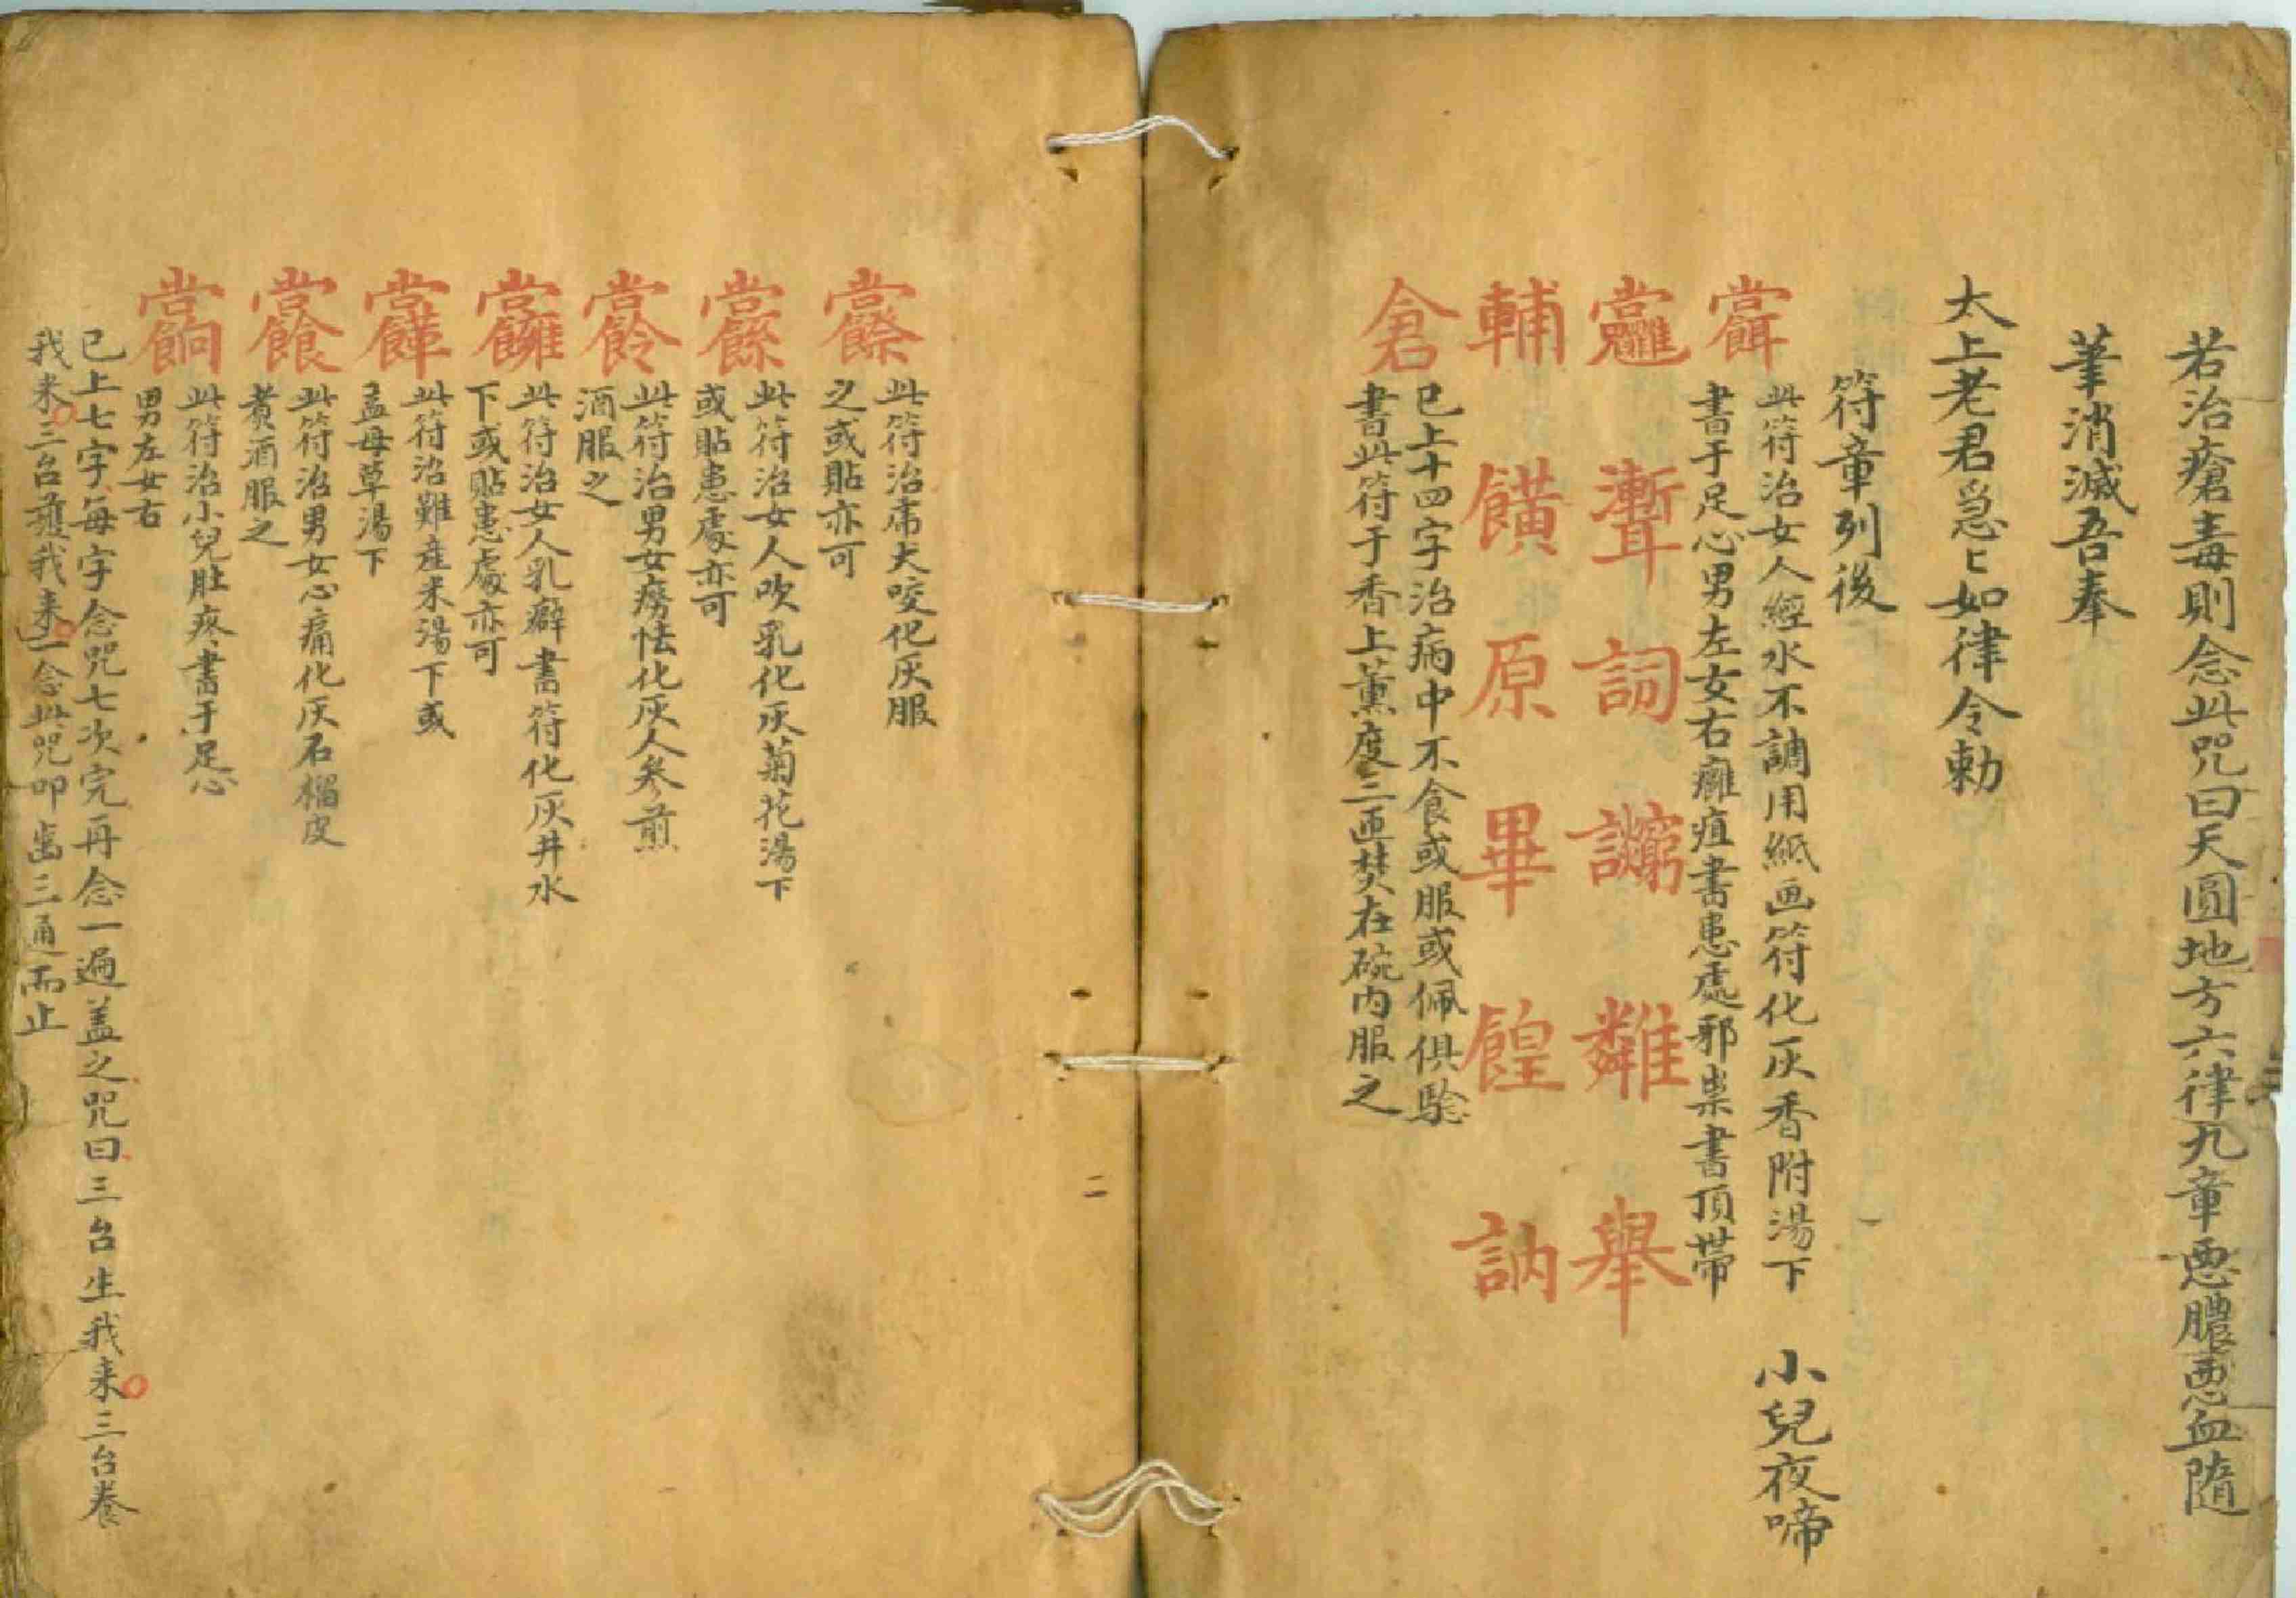 若治瘡毒則念此咒曰天圓地方六律九章惡膿惡血隨
筆消滅吾奉
太上老君急〻如律令勅
符章列後
此符治女人經水不調用紙画符化灰香附湯下 小兒夜啼
書于足心男左女右癰疽書患處邪祟書頂帶
詞 舉
輔 原 畢 餭 訥
倉
已上十四字治病中不食或服或佩俱騐
書此符于香上薰度三匝焚在碗内服之
此符治席犬咬化灰服
之或貼亦可
此符治女人吹乳化灰菊花湯下
或貼患處亦可
此符治男女癆怯化灰人參煎
酒服之
此符治女人乳癖書符化灰井水
下或貼患處亦可
此符治難産米湯下或
益母草湯下
此符治男女心痛化灰石榴皮
煮酒服之
此符治小兒肚疼書于足心
男左女右
已上七字每字念咒七次完再念一遍盖之咒曰三台生我来三台養
我来三台護我来一念此咒叩齒三通而止
二